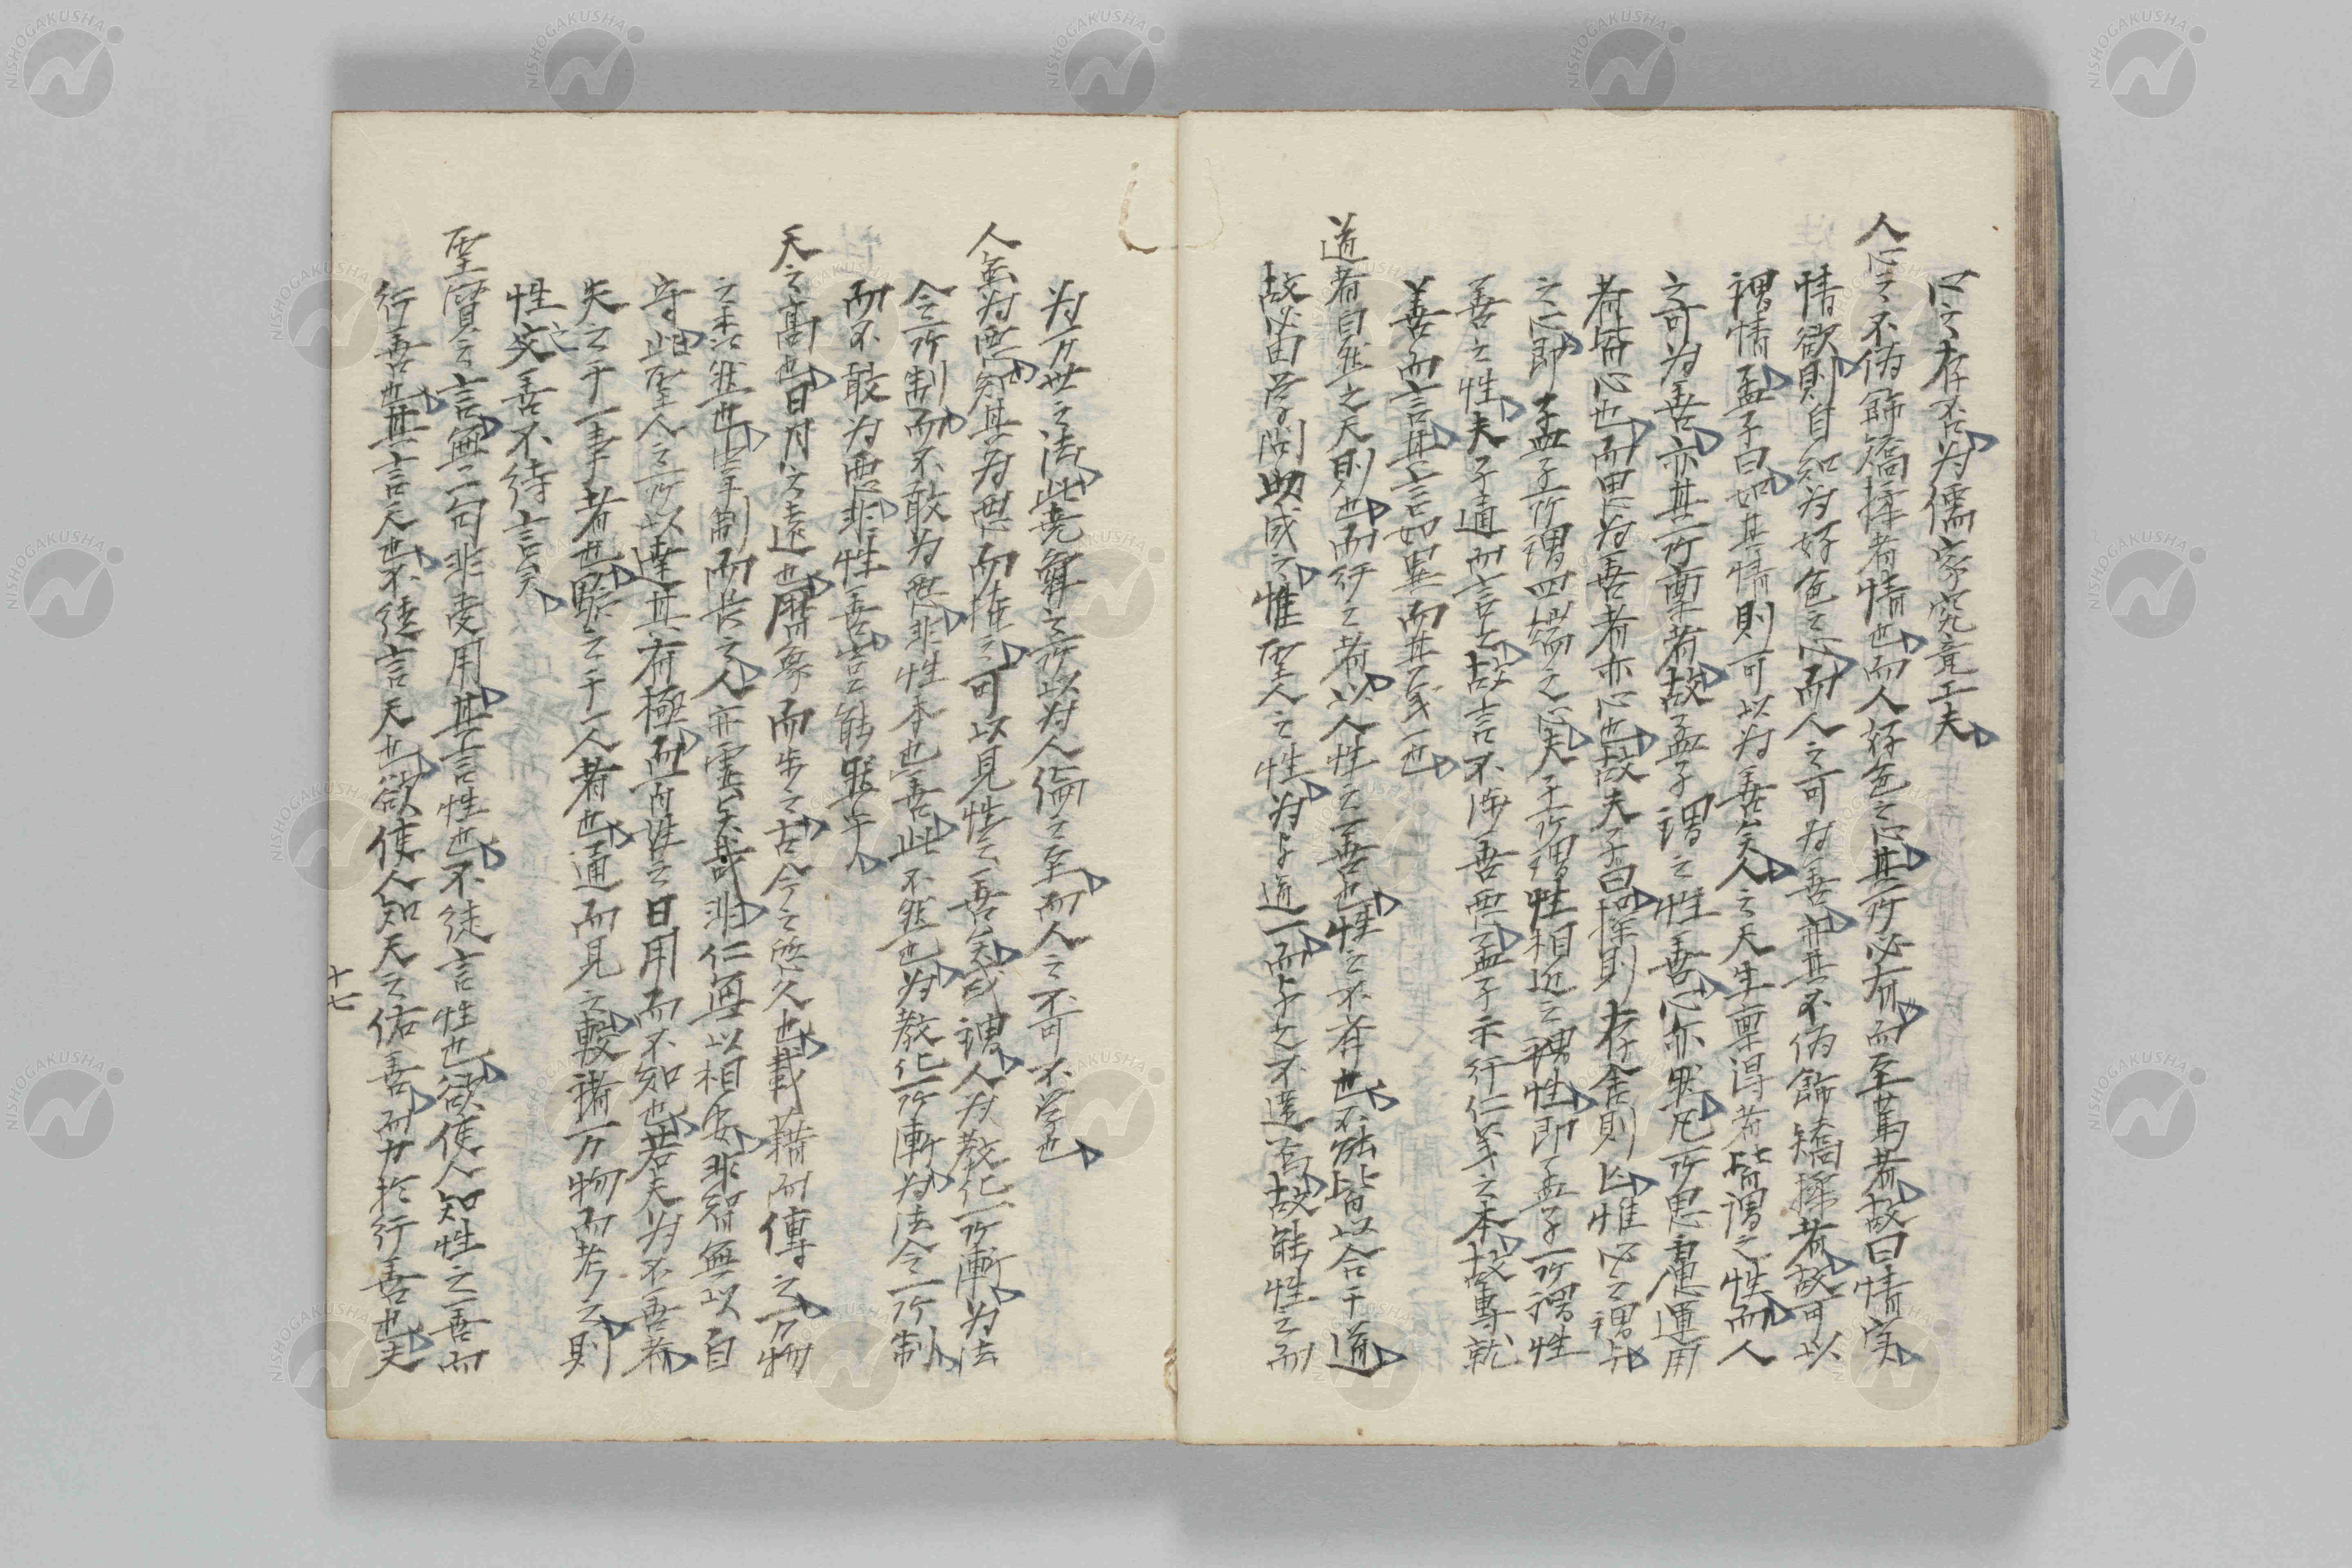 心之存否為儒家究竟工夫
人心之不偽飾矯揉者情也而人好色之心其所必有而至篤者故曰情実
情欲則自知為好色之心而人之可為善亦其不偽飾矯揉者故可以
謂情孟子曰如其情則可以為善矣人之天生稟得者皆謂之性而人
之可為善亦其所稟者故孟子謂之性善心亦然凡所思慮運用
者皆心也而思為善者亦心也故夫子曰操則存舍則亡惟心之謂与
之心即孟子所謂四端之心夫子所謂性相近之謂性即孟子所謂性
善之性夫子通而言之故言不渉善悪孟子示行仁義之本故専就
善而言其言如異而其気一也
道者自然之天則也而行之者以人性之善也性之不存也不能皆以合于道
故必由学問助成之惟聖人之性為与道一而与之不違否故能性之而
為万世之法此堯舜之所以為人倫之至而人之不可不学也
人気為悪察其為悪而推之可以見性之善矣或謂人為教化所漸為法
令所制而不敢為悪非性本也善此不然也為教化所漸為法令所制
而不敢為悪非性善豈能然乎
天之高也日月之遠也暦象而歩之古今之悠久也載籍而伝之万物
之衆也牢制而長之人亦霊矣哉非仁無以相安非智無以自
守此聖人之所以建其有極而百姓之日用而不知也若夫為不善者
失之于一事者也験之于一人者也通而見之較諸万物而考之則
性之善不待言矣
聖賢之言無一句非受用其言性也不徒言性也欲使人知性之善而
行善也其言天也不徒言天也欲使人知天之佑善而力於行善也夫
十七
NISHOGAKUSHA